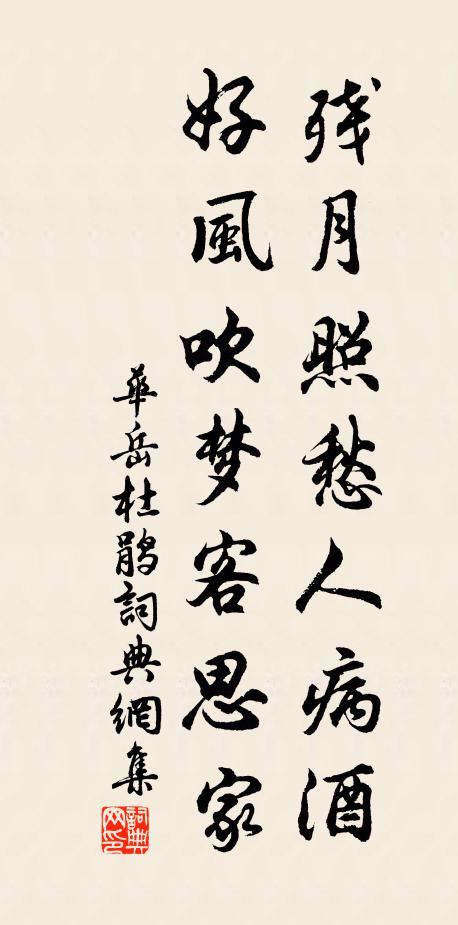 残月照愁人病酒
好風吹梦客思家
華岳杜鹃詞典網集
詞典網印